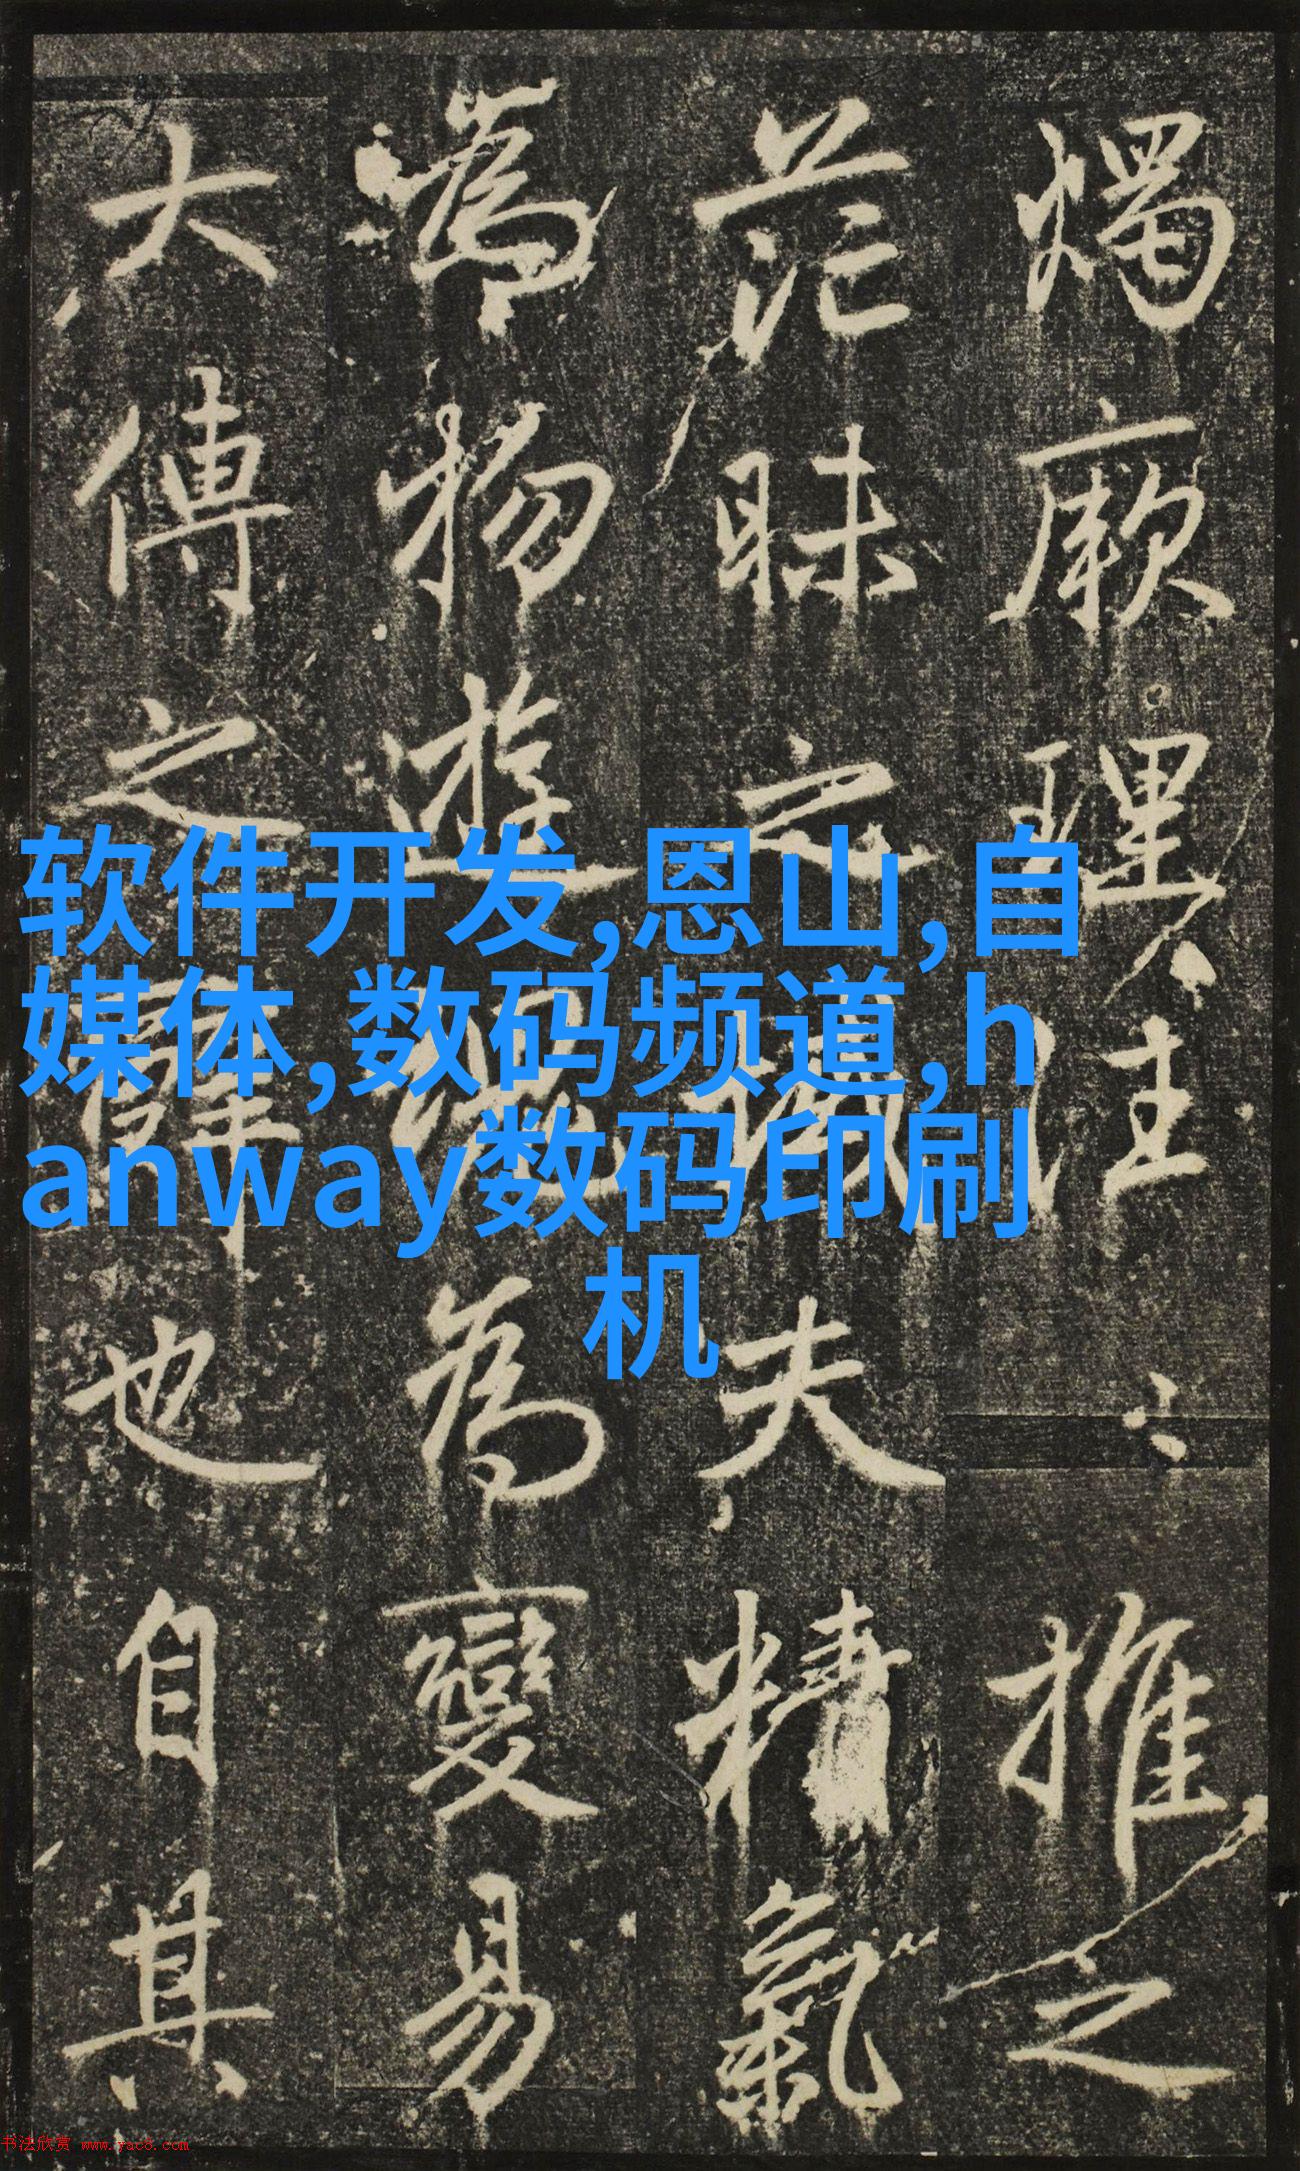 燭厥理推之
茫昧之域夫精氣
為物遊魂為變易
大傳之辭也自其
软件开发,恩山,自
媒体,数码频道,h
anway数码印刷
机
书法欣赏 www.yac8.com